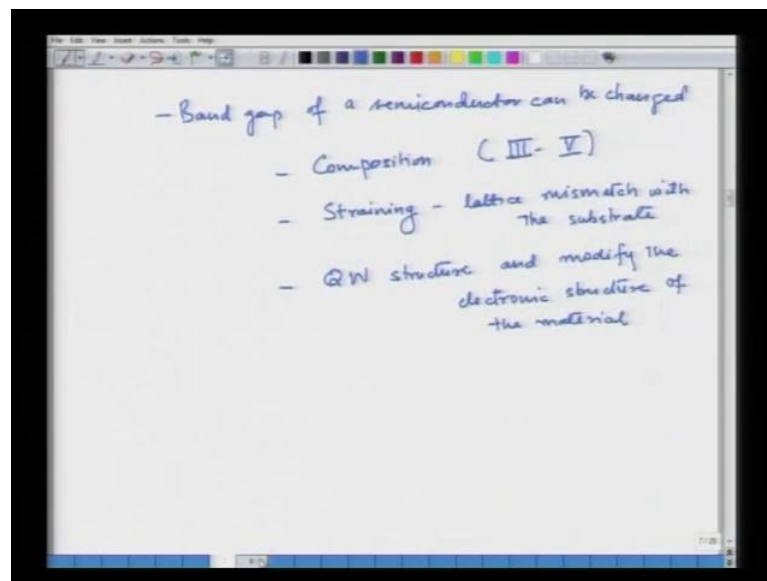 File Edit View Insert Actions Tools Help
- Band gap of a semiconductor can be changed
- Composition (III-V)
- Straining - lattice mismatch with
the substrate
- QW structure and modify the
electronic structure of
the material